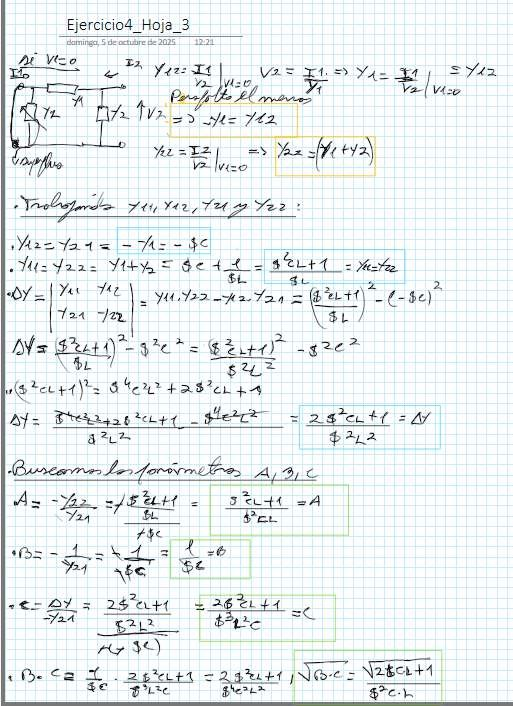 Ejercicio4_Hoja_3
domingo, 5 de octubre de 2025 12:21
Si V1=0
I1 I2 Y12 = I1/V2 |V1=0 V2 = I1/Y1 => Y1 = I1/V2 |V1=0 = Y12
Y1 Y2 Y2 ↑V2
=> -Y1 = Y12
Y22 = I2/V2 |V1=0 => Y22 = (Y1+Y2)
. Trabajando Y11, Y12, Y21 y Y22:
. Y12 = Y21 = -Y1 = -$C
. Y11 = Y22 = Y1+Y2 = $C + 1/$L = ($²CL+1)/$L = Y11=Y22
. ΔY = |Y11 Y12 / Y21 Y22| = Y11·Y22 - Y12·Y21 = (($²CL+1)/$L)² - (-$C)²
ΔY = (($²CL+1)/$L)² - $²C² = ($²CL+1)²/$²L² - $²C²
. ($²CL+1)² = $⁴C²L² + 2$²CL + 1
ΔY = ($⁴C²L² + 2$²CL+1 - $⁴C²L²)/$²L² = (2$²CL+1)/$²L² = ΔY
. Buscamos los parámetros A, B, C
A = -Y22/Y21 = +(($²CL+1)/$L)/(+$C) = ($²CL+1)/$²CL = A
. B = -1/Y21 = -1/-$C = 1/$C = B
. C = ΔY/-Y21 = ((2$²CL+1)/$²L²)/(-(-$C)) = (2$²CL+1)/$³L²C = C
. B·C = 1/$C · (2$²CL+1)/$³L²C = (2$²CL+1)/$⁴C²L², √B·C = √(2$CL+1)/$²C·L